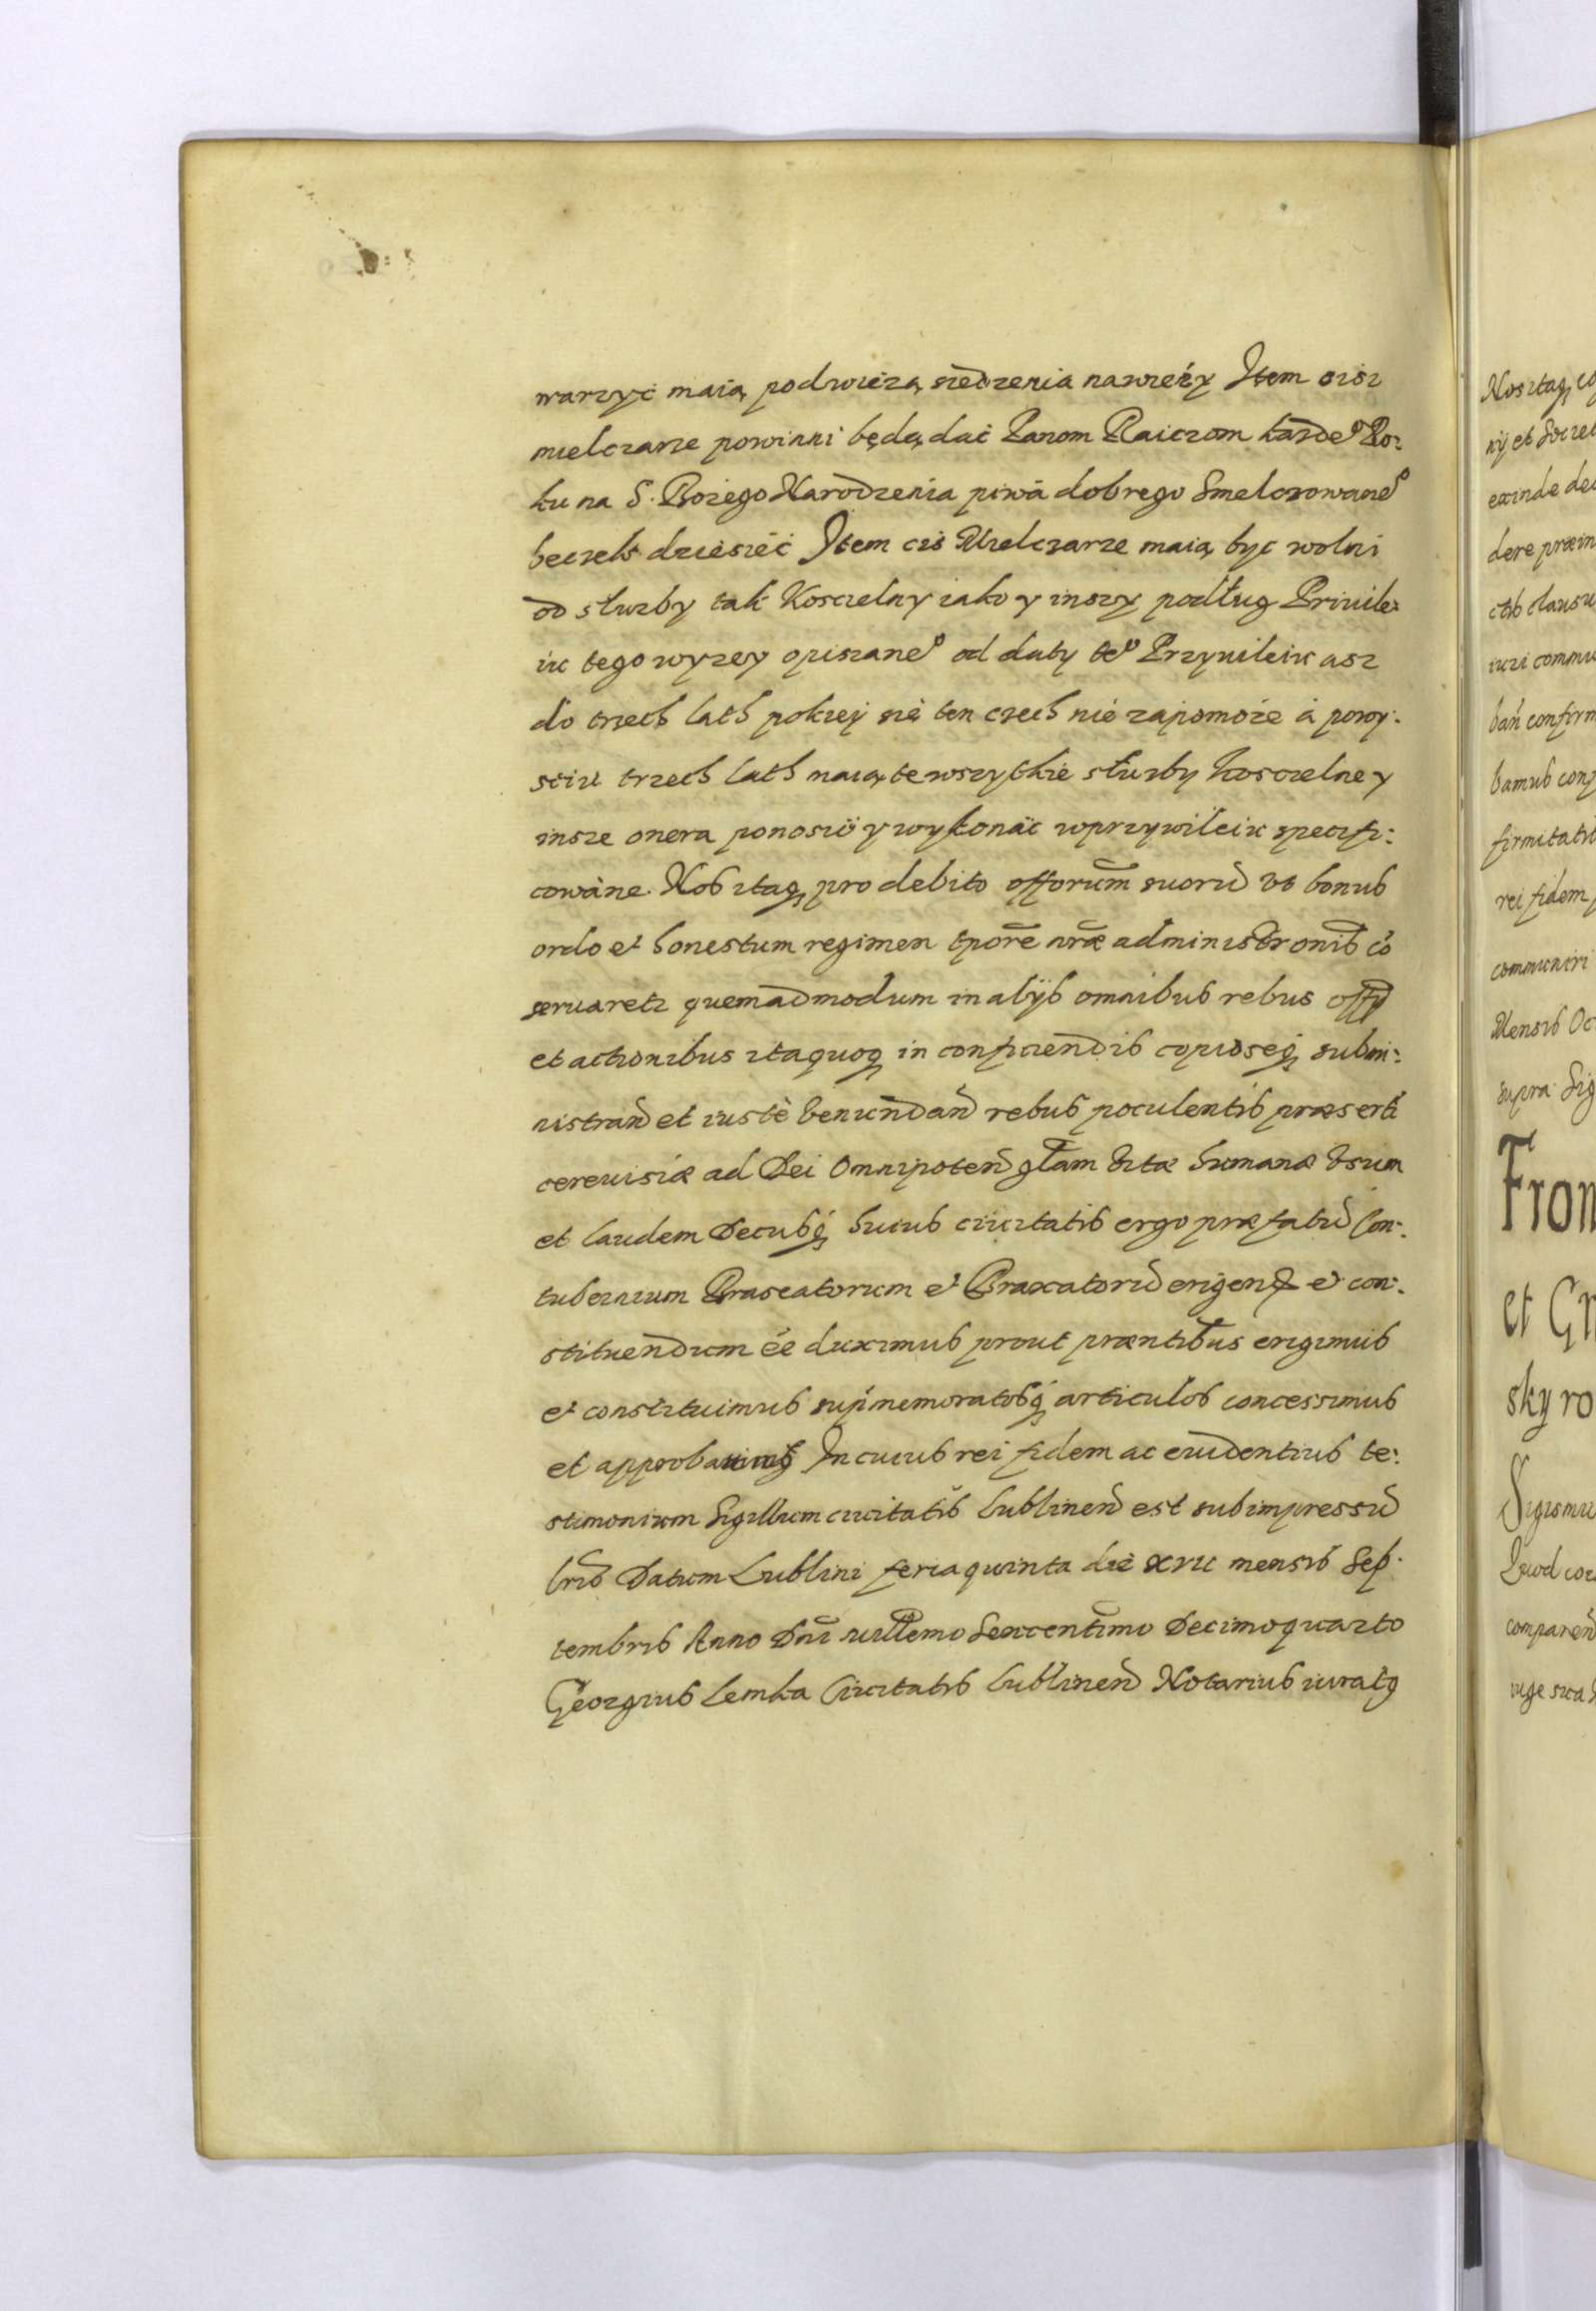 warzyć maią pod wieżą siedzenia na wieży Item cisz
mielczarze powinni będą dać Panom Raiczom każde⁰ Ro:
ku na S. Bożego Narodzenia piwá dobrego Smelczowane⁰
beczek dziesięć Item ciś Mielczarze maią być wolni
od służby tak Koscielny iako y inszy podług Priuile:
iu tego wyzey opiszane⁰ od daty te⁰ Przyuileiu asz
do trzech lath pokiey się ten czech nie zapomoże á powy:
sciu trzech lath maią te wszytkie służby koscielne y
insze onera ponosić y wykonać w przywileiu specifi:
cowáne. Nos itaq pro debito offorum suorũ vt bonus
ordo et honestum regimen tpore nrae administronis cõ
seruaretr quemadmodum in alijs omnibus rebus
et actionibus ita quoq in conficiendis copioseq submi:
nistrand et iustè venundand rebus poculentis praeserti
cereuisiae ad Dei Omnipoten glam vitae humanae vsum
et laudem Decusq huius ciuitatis ergo praefatũ Con:
tubernium Braseatorum et Braxatorũ erigend et con:
stituendum ee duximus prout praentibus erigimus
et constituimus supmemoratosq articulos concessimus
et approbauimus In cuius rei fidem ac euidentius te:
stimonium Sigillum ciuitatis Lublinen est subimpressũ
lris Datum Lublini feria quinta die xvii mensis Sep:
tembris Anno Dni millemo Sexcentimo Decimoquarto
Georgius Lemka Ciuitatis Lublinen Notarius iuratq
Nos itaq co
nij et Socret
exinde de
dere praein
ctis clausu
iuri commu
firmitatis
rei fidem
communiri
Mensis Oc
supra Sig
From
et Gr
sky ro
Sigismu
Quod cor
comparen